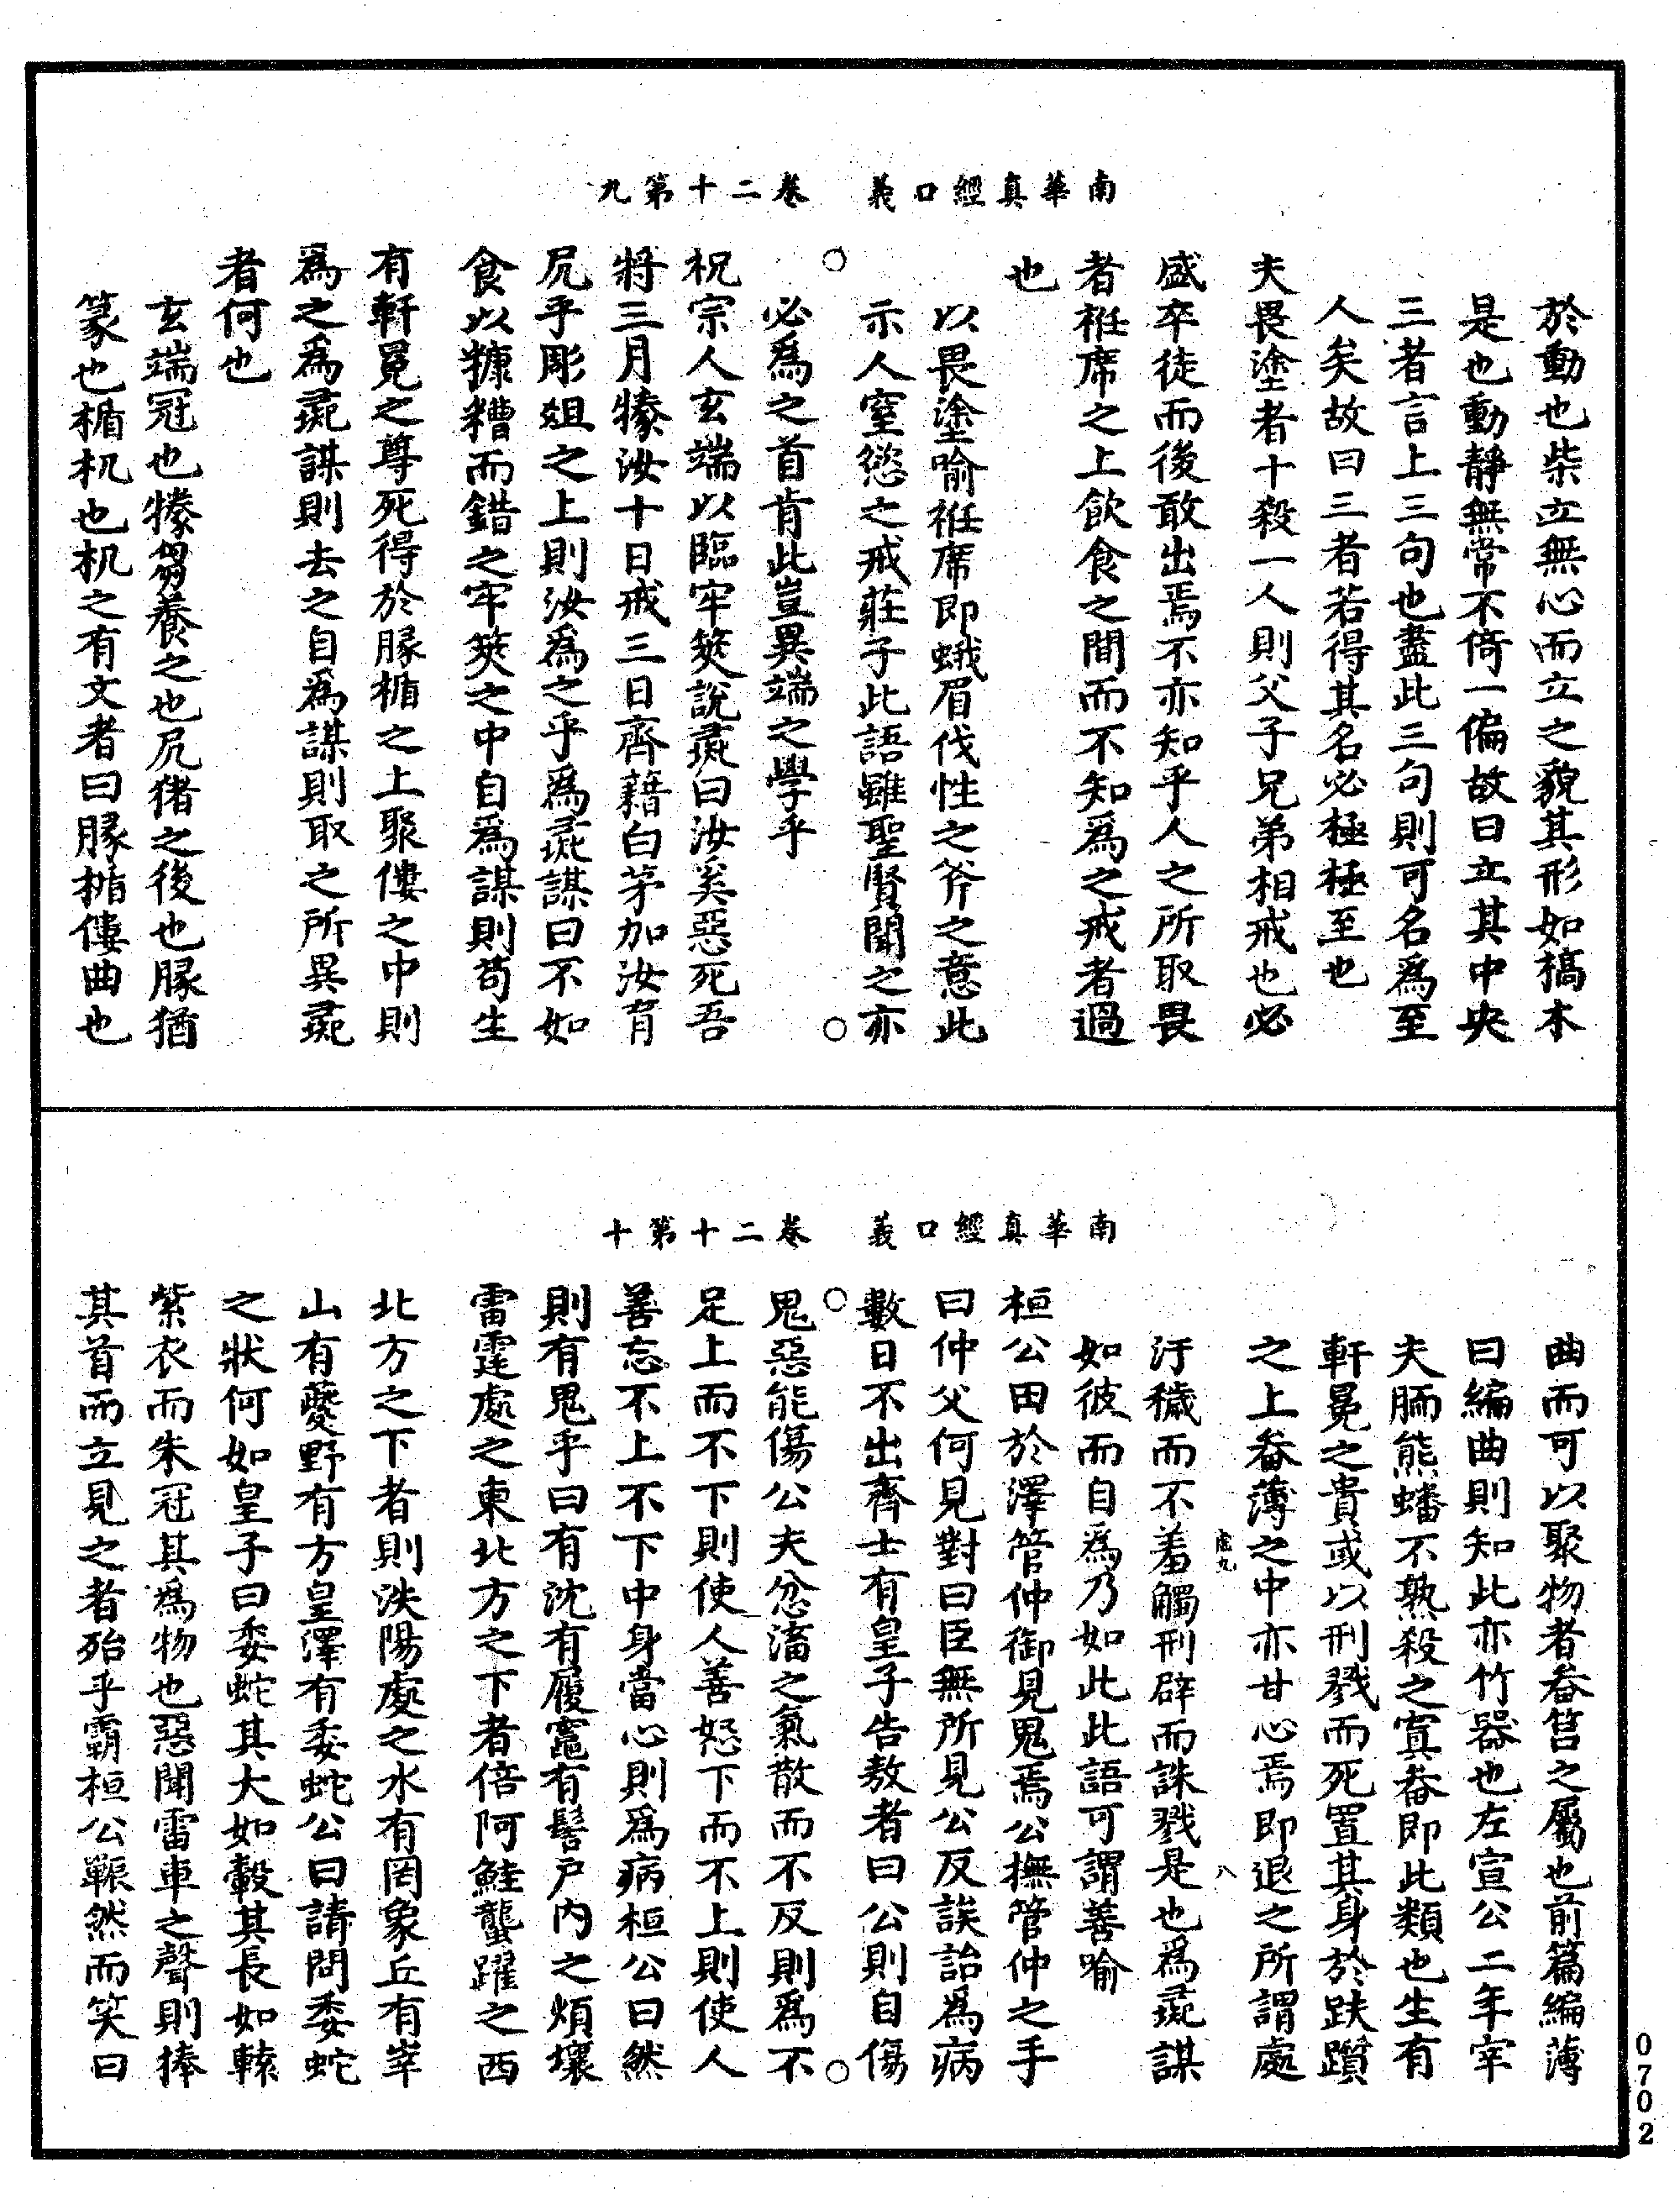 南華真經口義　卷二十第九
於動也柴立無心而立之貌其形如槁木
是也動靜無常不倚一偏故曰立其中央
三者言上三句也盡此三句則可名為至
人矣故曰三者若得其名必極極至也
夫畏塗者十殺一人則父子兄弟相戒也必
盛卒徒而後敢出焉不亦知乎人之所取畏
者袵席之上飲食之間而不知為之戒者過
也
以畏塗喻袵席即蛾眉伐性之斧之意此
示人窒慾之戒莊子此語雖聖賢聞之亦
必為之首肯此豈異端之學乎
祝宗人玄端以臨牢筴說彘曰汝奚惡死吾
將三月㹖汝十日戒三日齊藉白茅加汝肩
尻乎彫俎之上則汝為之乎為彘謀曰不如
食以糠糟而錯之牢筴之中自為謀則苟生
有軒冕之尊死得於腞楯之上聚僂之中則
為之為彘謀則去之自為謀則取之所異彘
者何也
玄端冠也㹖芻養之也尻猪之後也腞猶
篆也楯机也机之有文者曰腞楯僂曲也
南華真經口義　卷二十第十
曲而可以聚物者畚筥之屬也前篇編薄
曰編曲則知此亦竹器也左宣公二年宰
夫胹熊蟠不熟殺之寘畚即此類也生有
軒冕之貴或以刑戮而死置其身於趺躓
之上畚薄之中亦甘心焉即退之所謂處
汙穢而不羞觸刑辟而誅戮是也為彘謀
如彼而自為乃如此此語可謂善喻
桓公田於澤管仲御見鬼焉公撫管仲之手
曰仲父何見對曰臣無所見公反誒詒為病
數日不出齊士有皇子告敖者曰公則自傷
鬼惡能傷公夫忿滀之氣散而不反則為不
足上而不下則使人善怒下而不上則使人
善忘不上不下中身當心則為病桓公曰然
則有鬼乎曰有沈有履竈有髻户內之煩壤
雷霆處之東北方之下者倍阿鮭蠪躍之西
北方之下者則泆陽處之水有罔象丘有峷
山有夔野有方皇澤有委蛇公曰請問委蛇
之狀何如皇子曰委蛇其大如轂其長如轅
紫衣而朱冠其為物也惡聞雷車之聲則捧
其首而立見之者殆乎霸桓公囅然而笑曰
八
0702